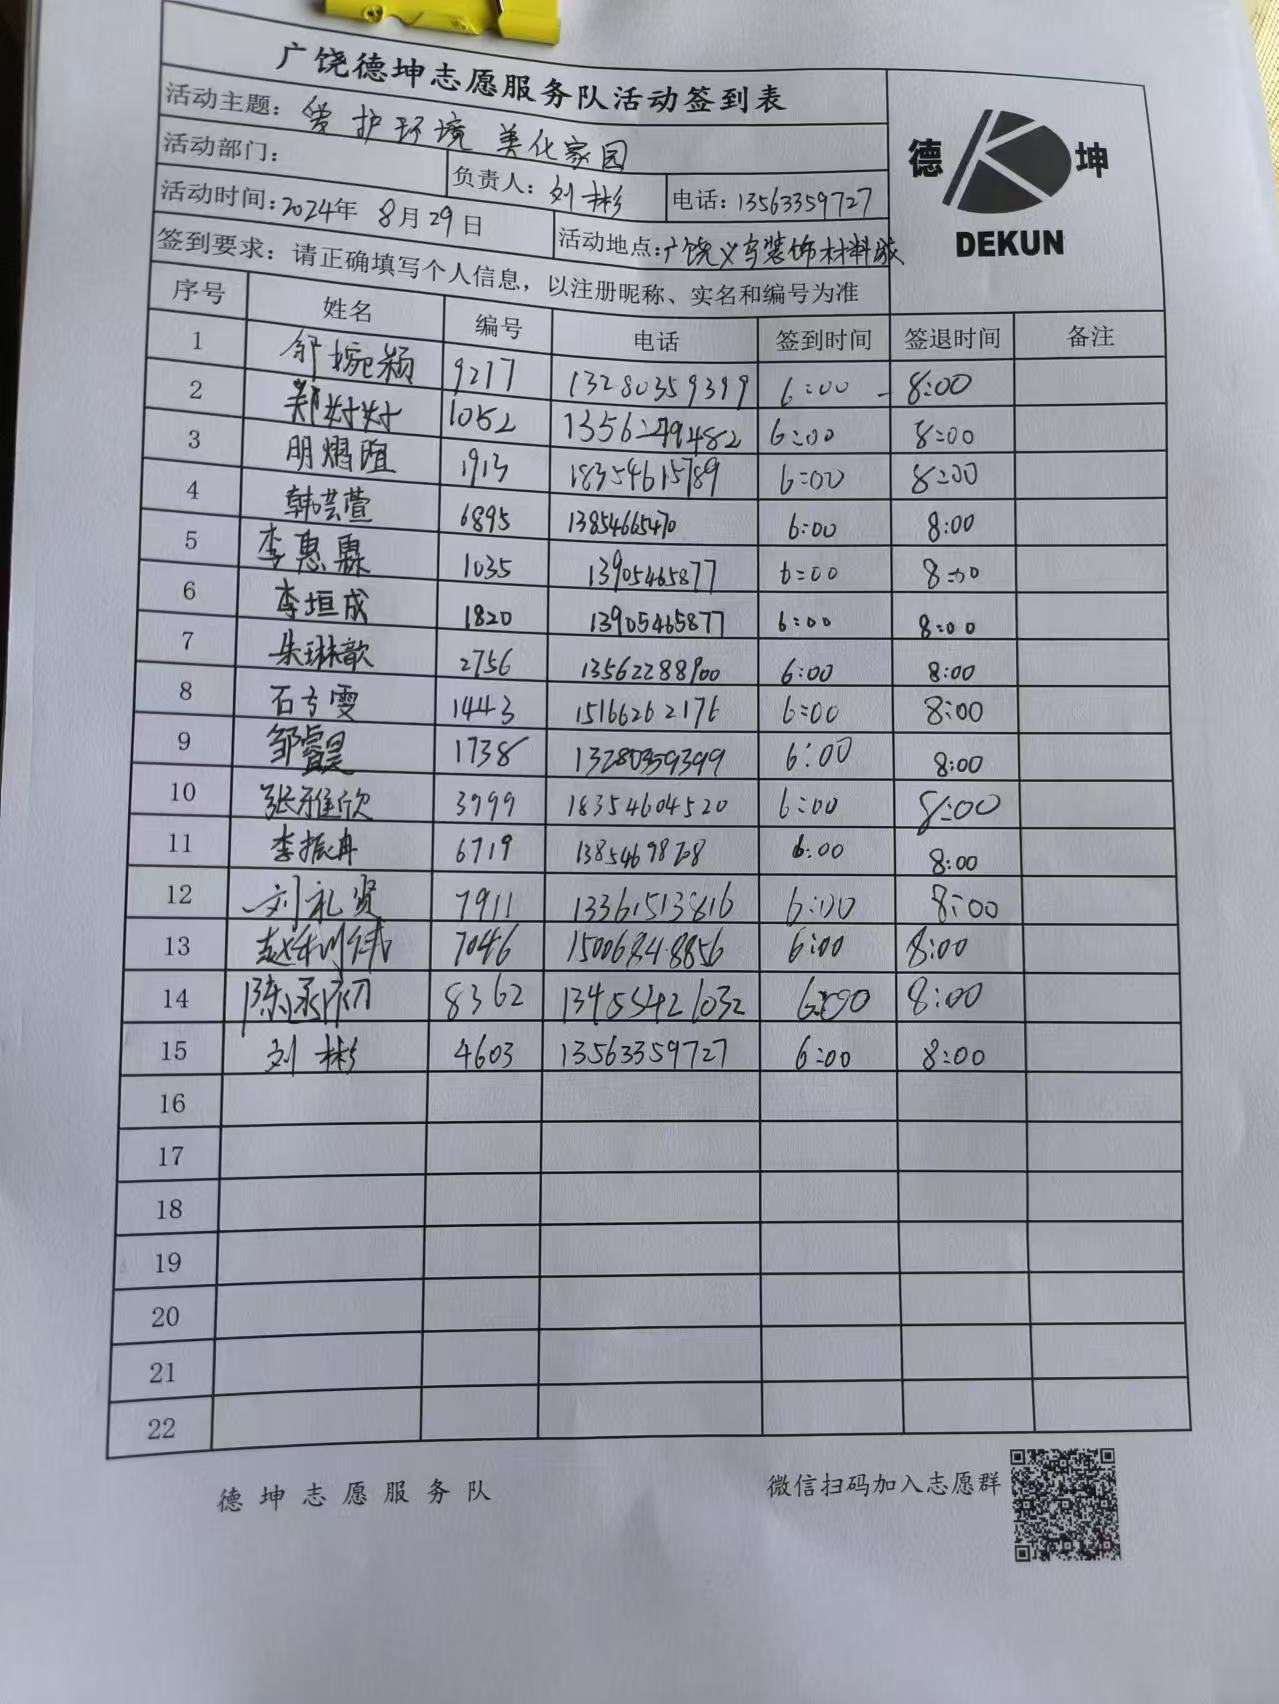 广饶德坤志愿服务队活动签到表
活动主题: 爱护环境 美化家园
德 坤
DEKUN
活动部门: 负责人: 刘彬 电话: 13563359727
活动时间: 2024年 8月29日 活动地点: 广饶义乌装饰材料城
签到要求: 请正确填写个人信息, 以注册昵称、实名和编号为准
序号 姓名 编号 电话 签到时间 签退时间 备注
1 邹婉颖 9217 13280359399 6:00 - 8:00
2 郑好好 1052 13562749482 6:00 8:00
3 明熠暄 1913 18354615789 6:00 8:00
4 韩芸萱 6895 13854665470 6:00 8:00
5 李惠霖 1035 13905465877 6:00 8:00
6 李垣成 1820 13905465877 6:00 8:00
7 朱琳歆 2756 13562288900 6:00 8:00
8 石兮雯 1443 15166262176 6:00 8:00
9 邹睿昊 1738 13280359399 6:00 8:00
10 张雅欣 3999 18354604520 6:00 8:00
11 李振冉 6719 6:00 8:00
12 刘礼贤 7911 13361513816 6:00 8:00
13 赵利伟 7046 15006848856 6:00 8:00
14 8362 13455421032 6:00 8:00
15 刘彬 4603 13563359727 6:00 8:00
16
17
18
19
20
21
22
德坤志愿服务队 微信扫码加入志愿群